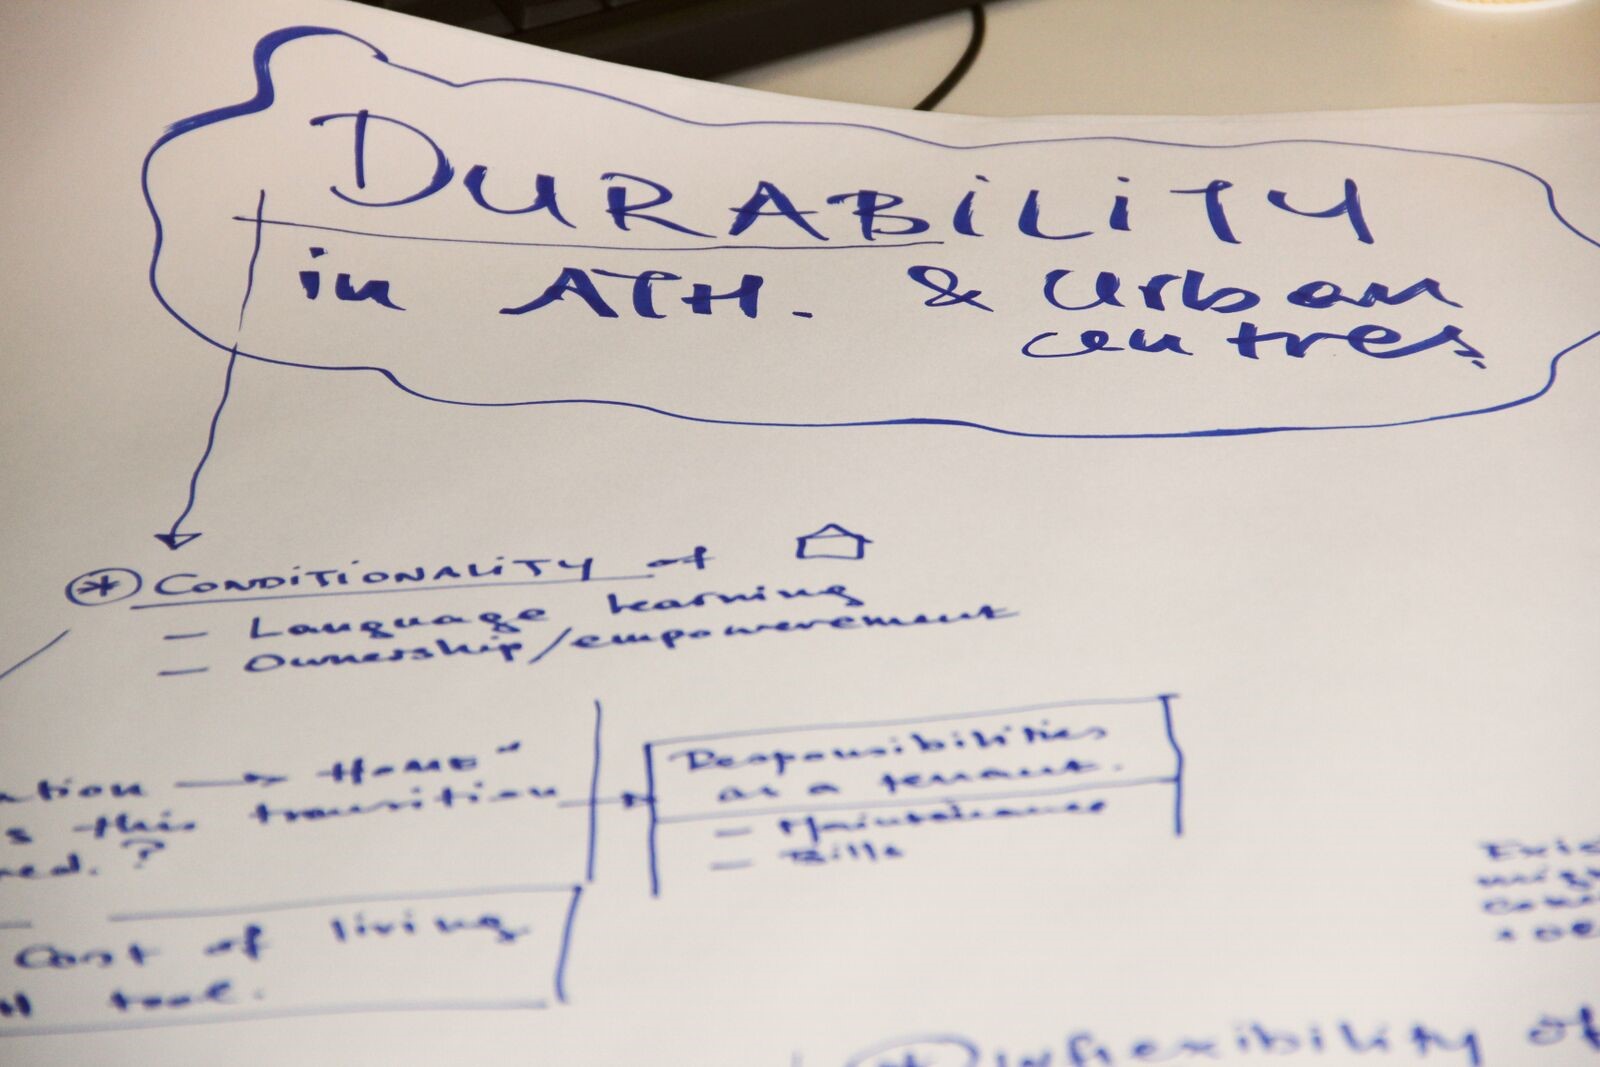 DURABILITY
in ATH. & Urban
centres
* CONDITIONALITY of
- Language learning
- Ownership/empowerement
→ HOME"
this transition
?
Responsibilities
as a tenant.
- Maintenance
- Bills
Cost of living
tool.
* Inflexibility of